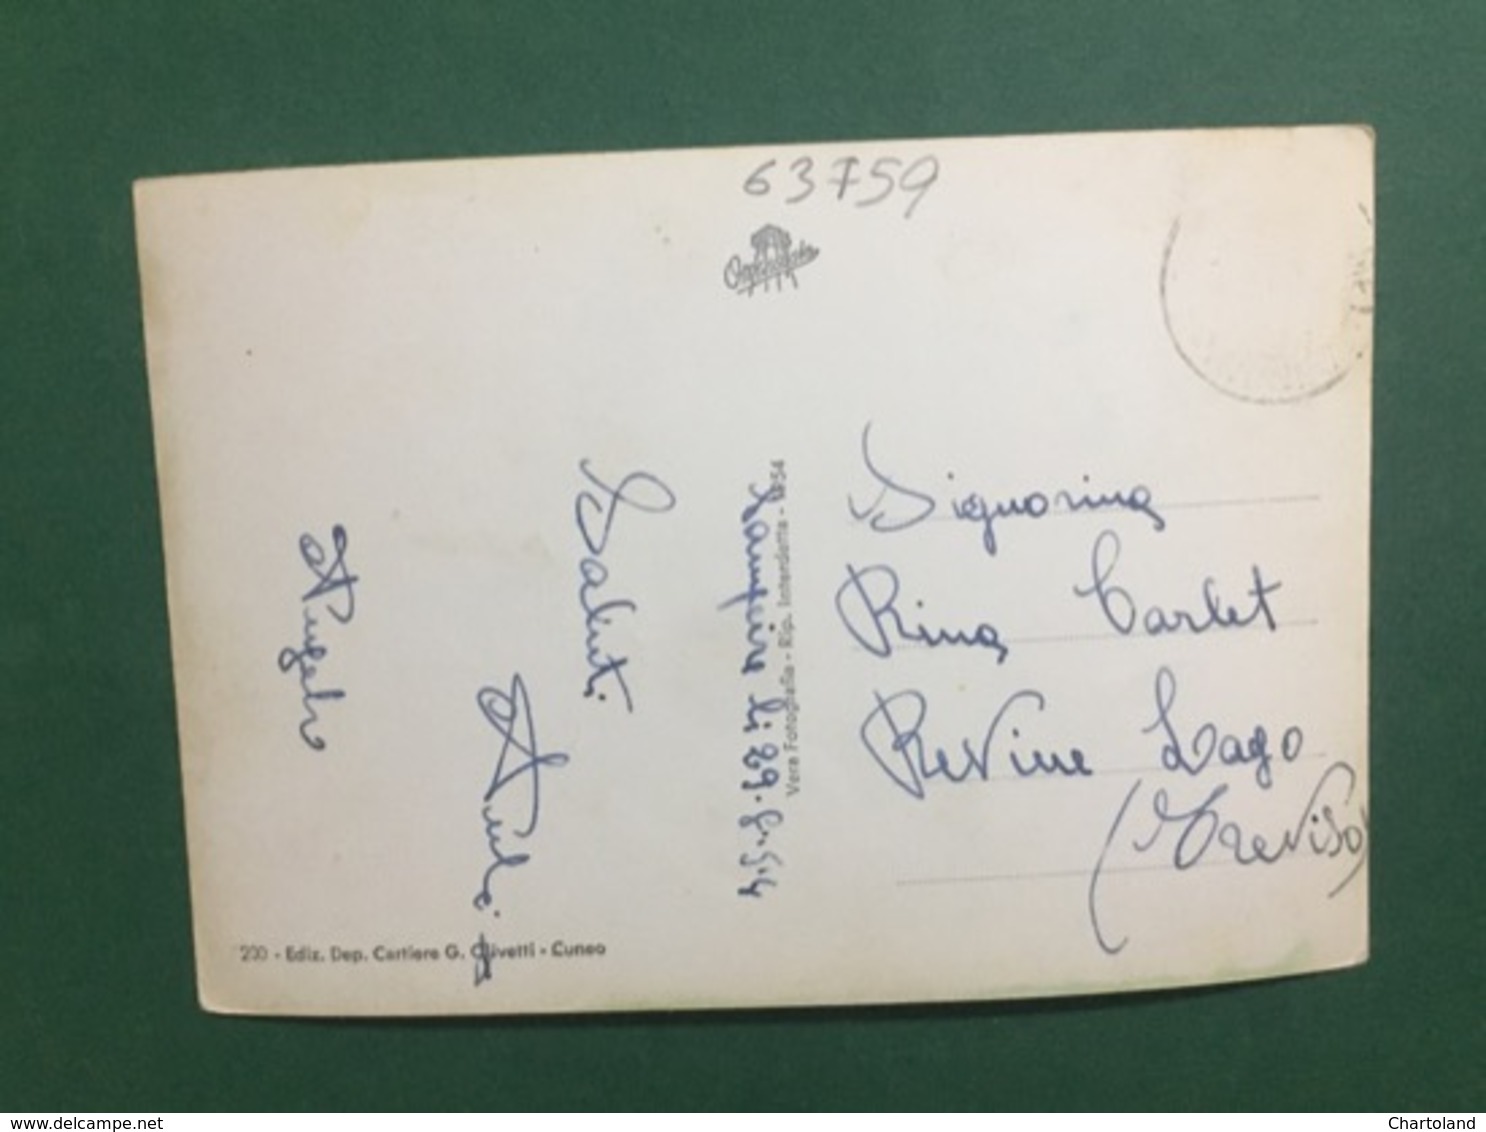 63759
Signorina
Rina Carlet
Revine Lago
(Treviso)
li 29.8.54
Saluti
Angelo
Vera Fotografia - Rip. Interdetta - 1954
200 - Ediz. Dep. Cartiere G. Olivetti - Cuneo
www.delcampe.net
Chartoland